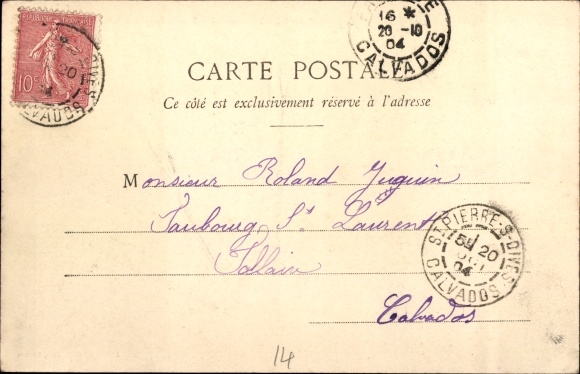 RÉPUBLIQUE FRANÇAISE
10c
DIVES
20
04
CALVADOS
16 *
20 -10
04
CALVADOS
CARTE POSTALE
Ce côté est exclusivement réservé à l'adresse
Monsieur Roland Juguin
Faubourg St Laurent
Falaise
Calvados
ST PIERRE-S-DIVES
5E 20
OCT
04
CALVADOS
14